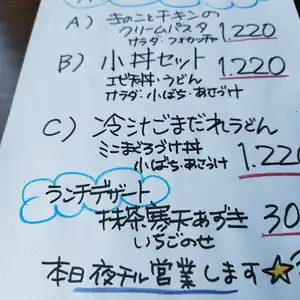 A) きのことチキンの
クリームパスタ 1.220
サラダ・フォカッチャ
B) 小丼セット 1.220
エビ天丼・うどん
サラダ・小ばち・あさづけ
C) 冷汁ごまだれうどん
ミニまぐろづけ丼 1.22
小ばち・あさづけ
ランチデザート
抹茶寒天あずき 30
いちごのせ
本日夜チル営業します